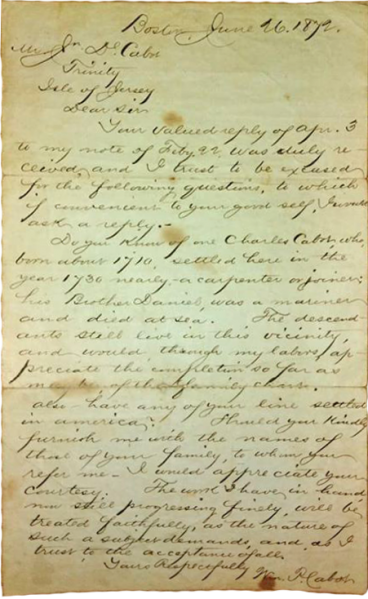 Boston, June 26. 1872.
Mr. Jn De Cabot
Trinity
Isle of Jersey
Dear Sir
Your valued reply of Apr. 3
to my note of Feby. 22, was duly re-
ceived, and I trust to be excused
for the following questions, to which
if convenient to your good self, I would
ask a reply.-
Do you know of one Charles Cabot, who,
born about 1710, settled here in the
year 1730 nearly - a carpenter or joiner;
his Brother Daniel, was a mariner
and died at sea. The descend-
ants still live in this vicinity,
and would, through my labors, ap-
preciate the completion so far as
may be of the family
also have any of your line settled
in america? Should you kindly
furnish me with the names of
that of your family, to whom you
refer me - I would appreciate your
courtesy. The work I have in hand
now still progressing finely, will be
treated faithfully, as the nature of
such a subject demands, and, as I
trust to the acceptance of all.
Yours Respecfully
Wm. P. Cabot